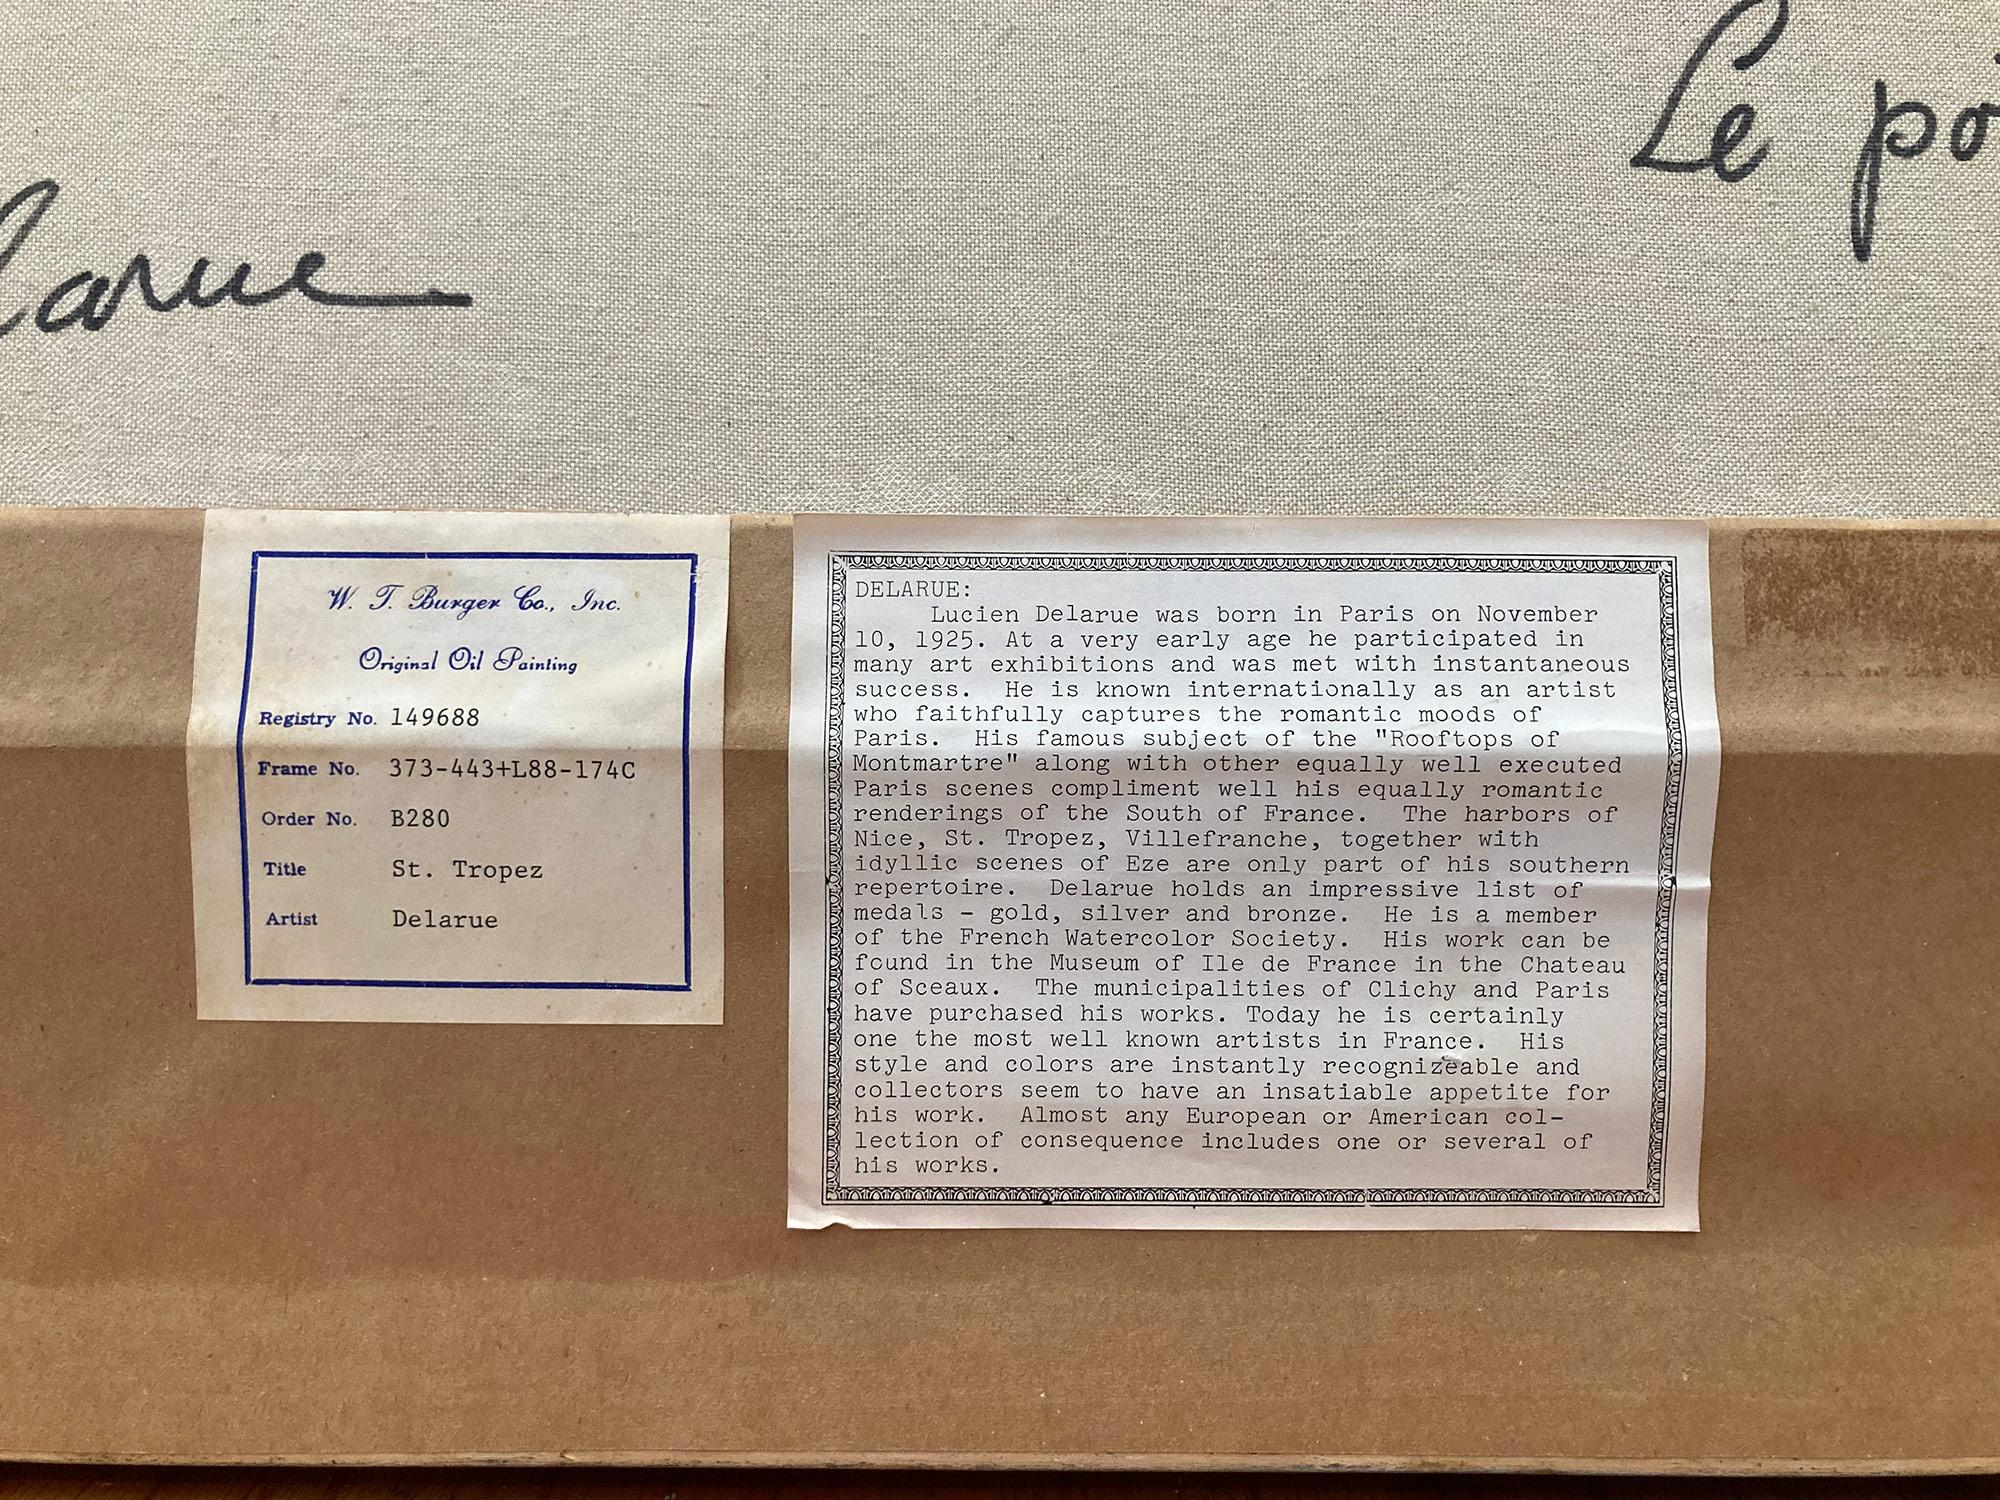 Le
W. T. Burger Co., Inc.
Original Oil Painting
Registry No. 149688
Frame No. 373-443+L88-174C
Order No. B280
Title St. Tropez
Artist Delarue
DELARUE:
Lucien Delarue was born in Paris on November
10, 1925. At a very early age he participated in
many art exhibitions and was met with instantaneous
success. He is known internationally as an artist
who faithfully captures the romantic moods of
Paris. His famous subject of the "Rooftops of
Montmartre" along with other equally well executed
Paris scenes compliment well his equally romantic
renderings of the South of France. The harbors of
Nice, St. Tropez, Villefranche, together with
idyllic scenes of Eze are only part of his southern
repertoire. Delarue holds an impressive list of
medals - gold, silver and bronze. He is a member
of the French Watercolor Society. His work can be
found in the Museum of Ile de France in the Chateau
of Sceaux. The municipalities of Clichy and Paris
have purchased his works. Today he is certainly
one the most well known artists in France. His
style and colors are instantly recognizeable and
collectors seem to have an insatiable appetite for
his work. Almost any European or American col-
lection of consequence includes one or several of
his works.